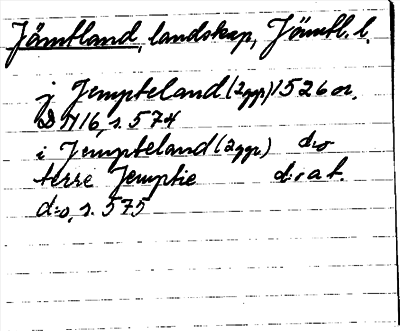 Jämtland, landskap, Jämtl. l.
j Jempteland (2ggr) 1526 or.
D N 16, s. 574
i Jempteland (2ggr) d:o
terre Jemptie d:o a t.
d:o, s. 575